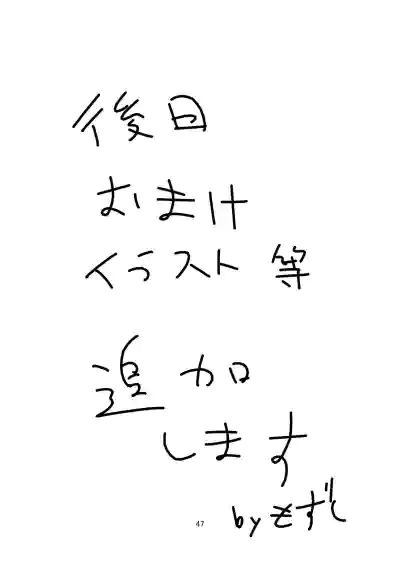 後日
おまけ
イラスト 等
追加
します
by もずく
47